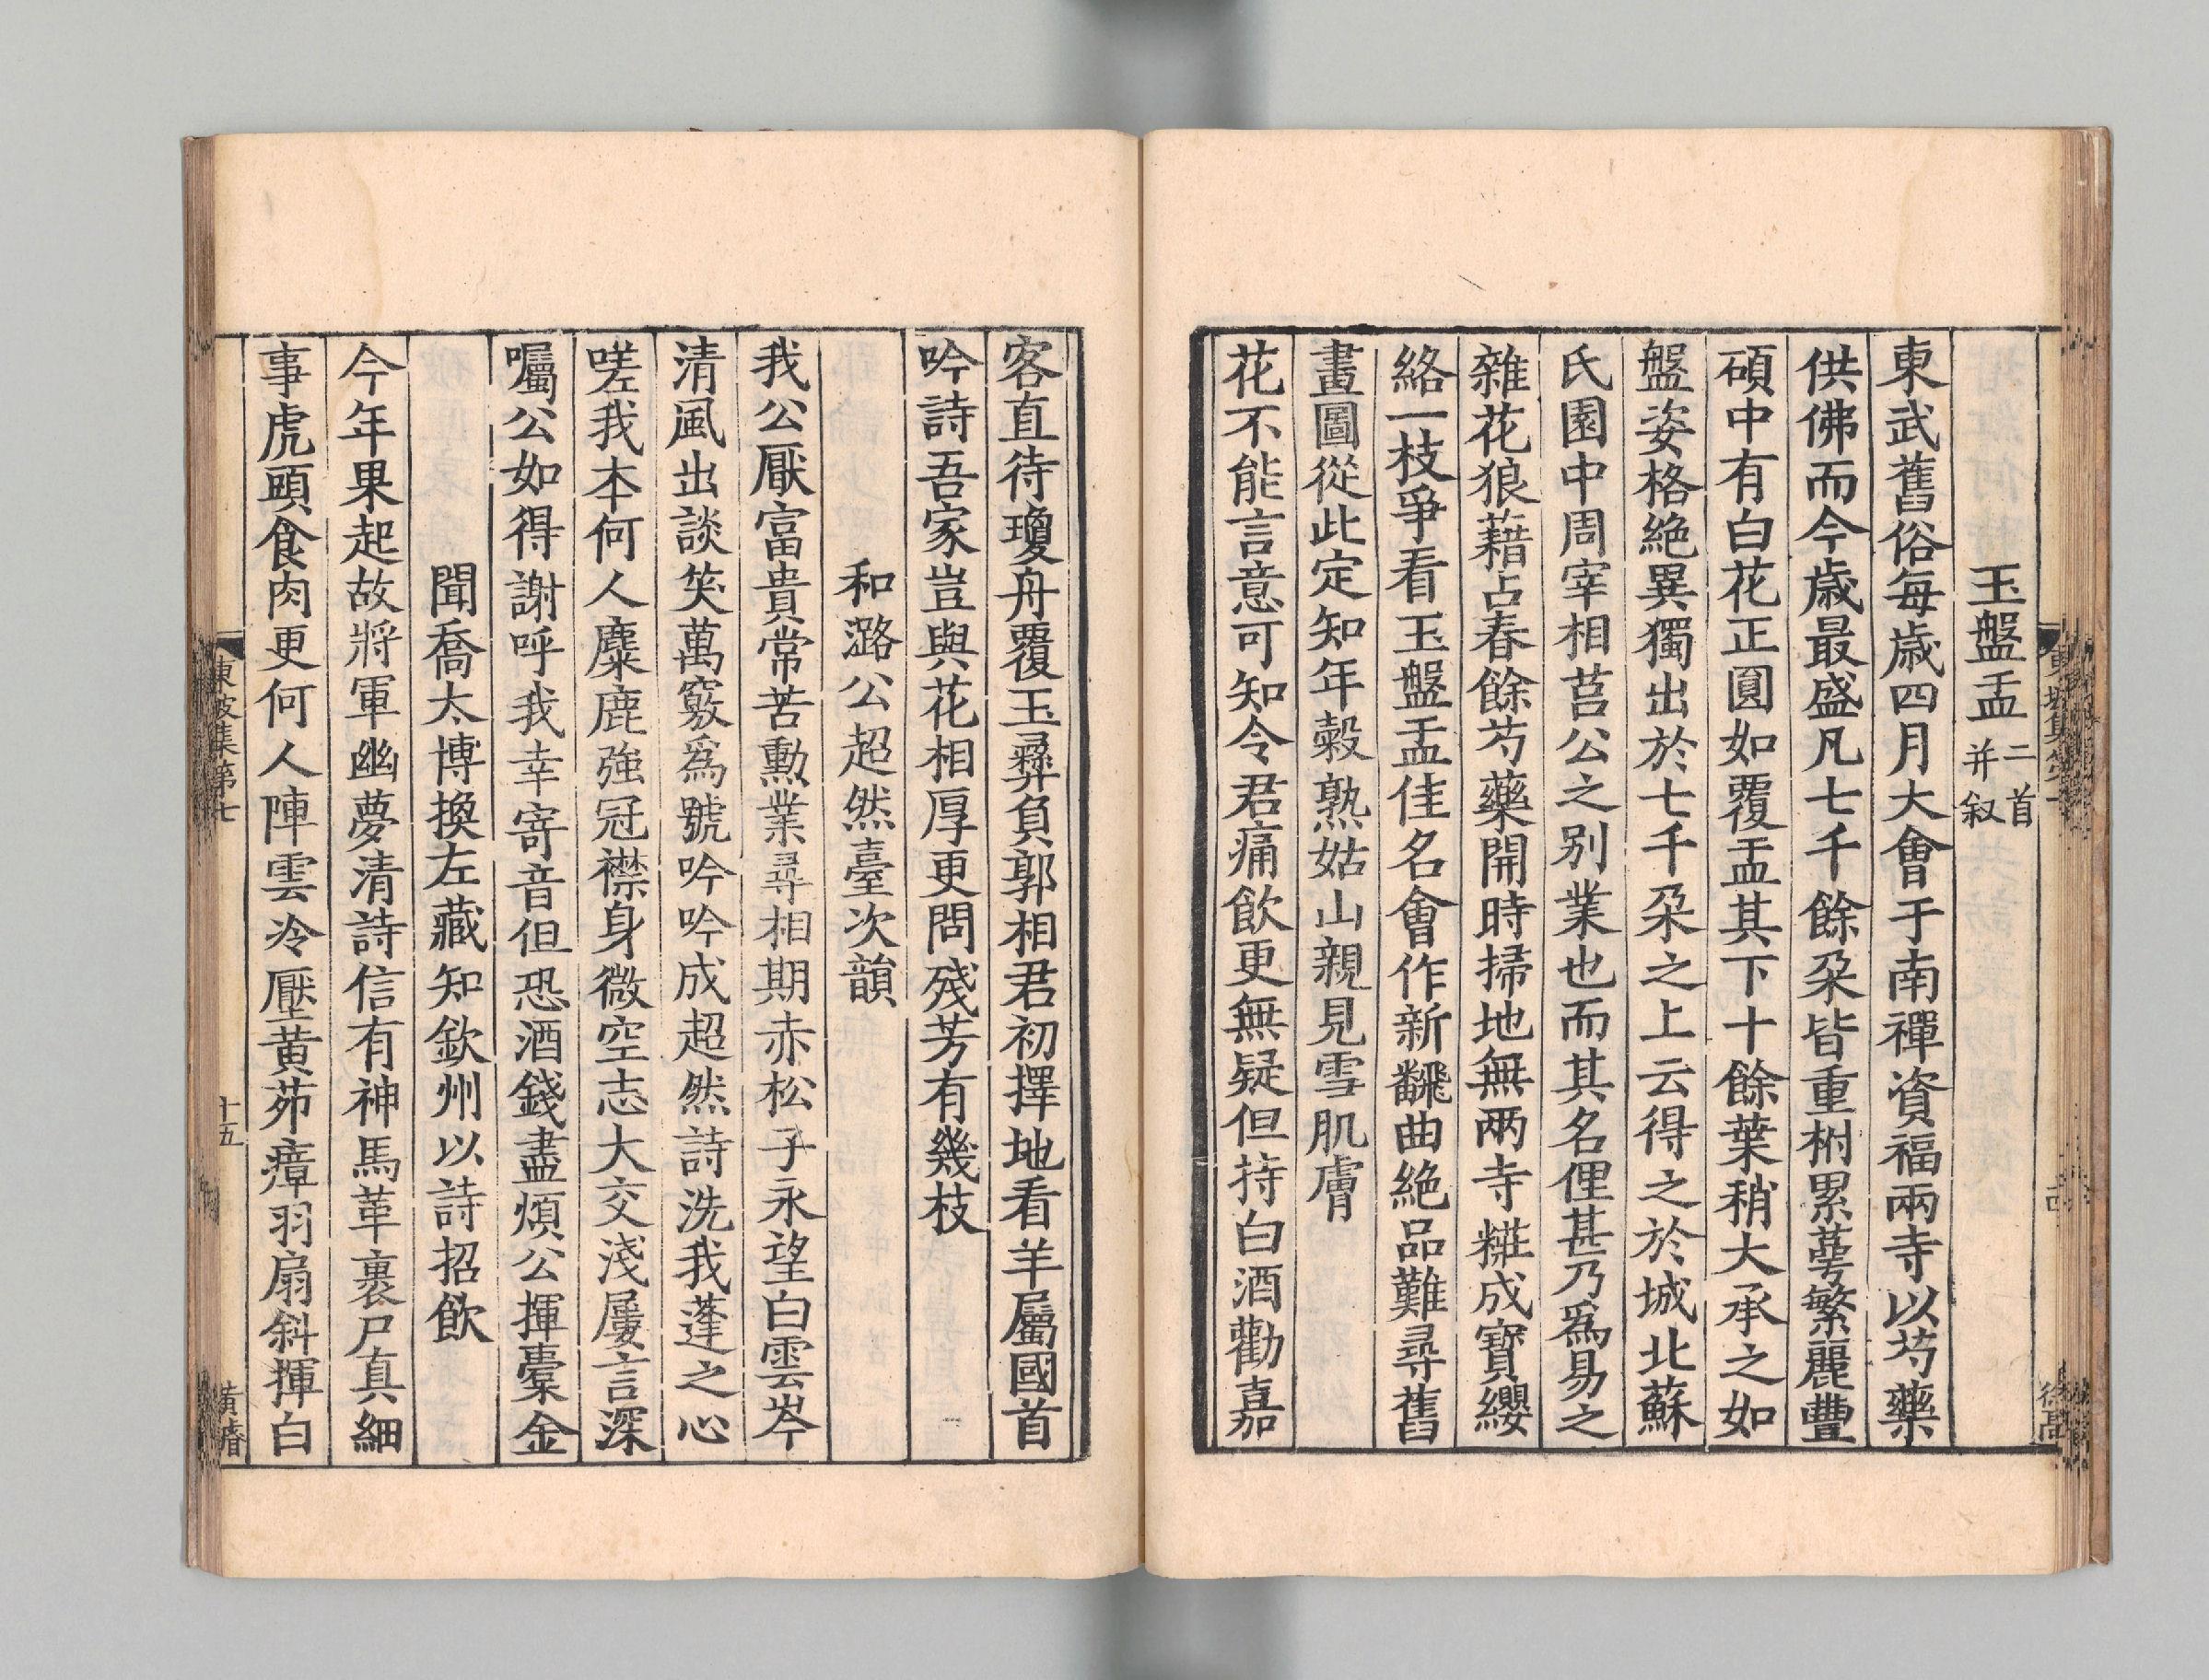 玉盤盂二首并叙
東武舊俗每歲四月大會于南禪資福兩寺以芍藥
供佛而今歲最盛凡七千餘朶皆重柎累萼繁麗豐
碩中有白花正圓如覆盂其下十餘葉稍大承之如
盤姿格絶異獨出於七千朶之上云得之於城北蘇
氏園中周宰相莒公之别業也而其名俚甚乃爲易之
雜花狼藉占春餘芍藥開時掃地無兩寺糚成寶纓
絡一枝爭看玉盤盂佳名會作新飜曲絶品難尋舊
畫圖從此定知年穀熟姑山親見雪肌膚
花不能言意可知令君痛飲更無疑但持白酒勸嘉
客直待瓊舟覆玉彞負郭相君初擇地看羊屬國首
吟詩吾家豈與花相厚更問殘芳有幾枝
和潞公超然臺次韻
我公厭富貴常苦勲業尋相期赤松子永望白雲岑
清風出談笑萬竅爲號吟吟成超然詩洗我蓬之心
嗟我本何人麋鹿強冠襟身微空志大交淺屢言深
囑公如得謝呼我幸寄音但恐酒錢盡煩公揮橐金
聞喬太博換左藏知欽州以詩招飲
今年果起故將軍幽夢清詩信有神馬革裹尸真細
事虎頭食肉更何人陣雲冷壓黄茆瘴羽扇斜揮白
東坡集第七
十五